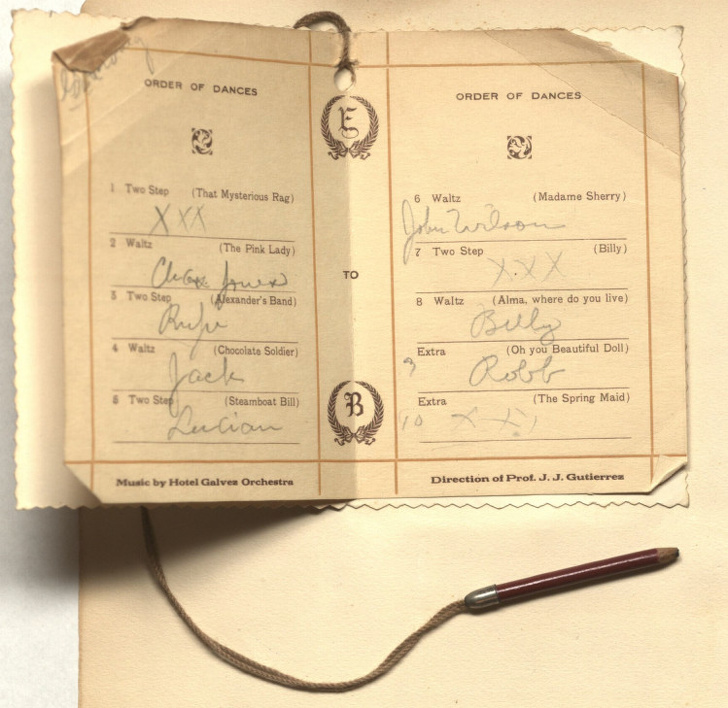 ORDER OF DANCES
1 Two Step (That Mysterious Rag)
XXX
2 Waltz (The Pink Lady)
Jones
3 Two Step (Alexander's Band)
4 Waltz (Chocolate Soldier)
Jack
5 Two Step (Steamboat Bill)
Lucian
Music by Hotel Galvez Orchestra
E
TO
B
ORDER OF DANCES
6 Waltz (Madame Sherry)
John Wilson
7 Two Step (Billy)
XXX
8 Waltz (Alma, where do you live)
Billy
Extra (Oh you Beautiful Doll)
9 Robb
Extra (The Spring Maid)
10 XXX
Direction of Prof. J. J. Gutierrez